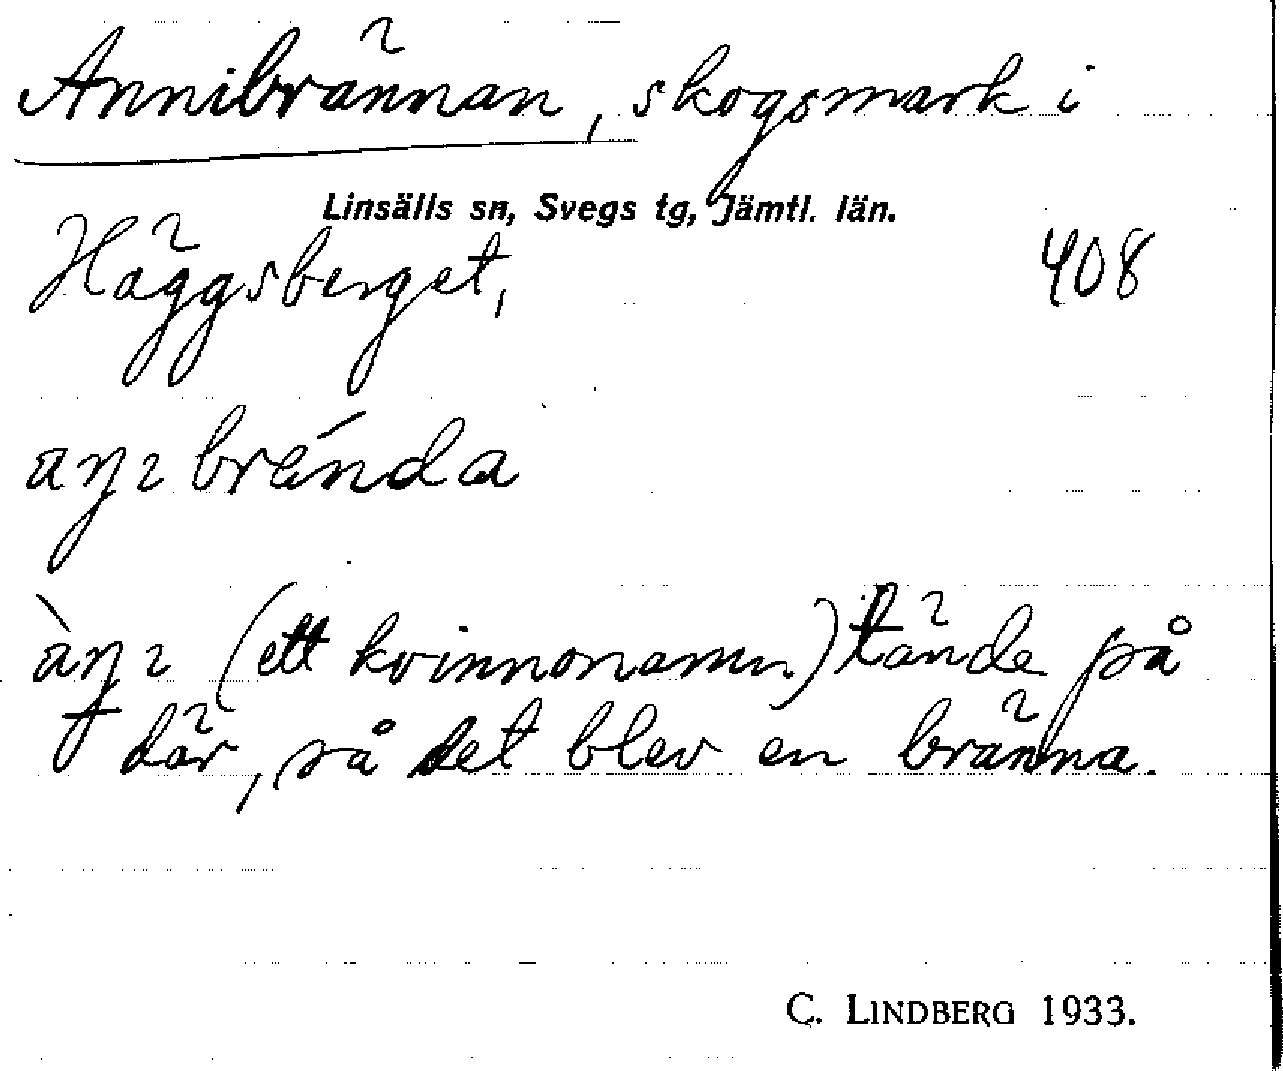 Annibrännan, skogsmark i
Linsälls sn, Svegs tg, Jämtl. län.
Häggsberget, 408
aŋı brända
àŋı (ett kvinnonamn) tände på
där, så det blev en bränna.
C. LINDBERG 1933.